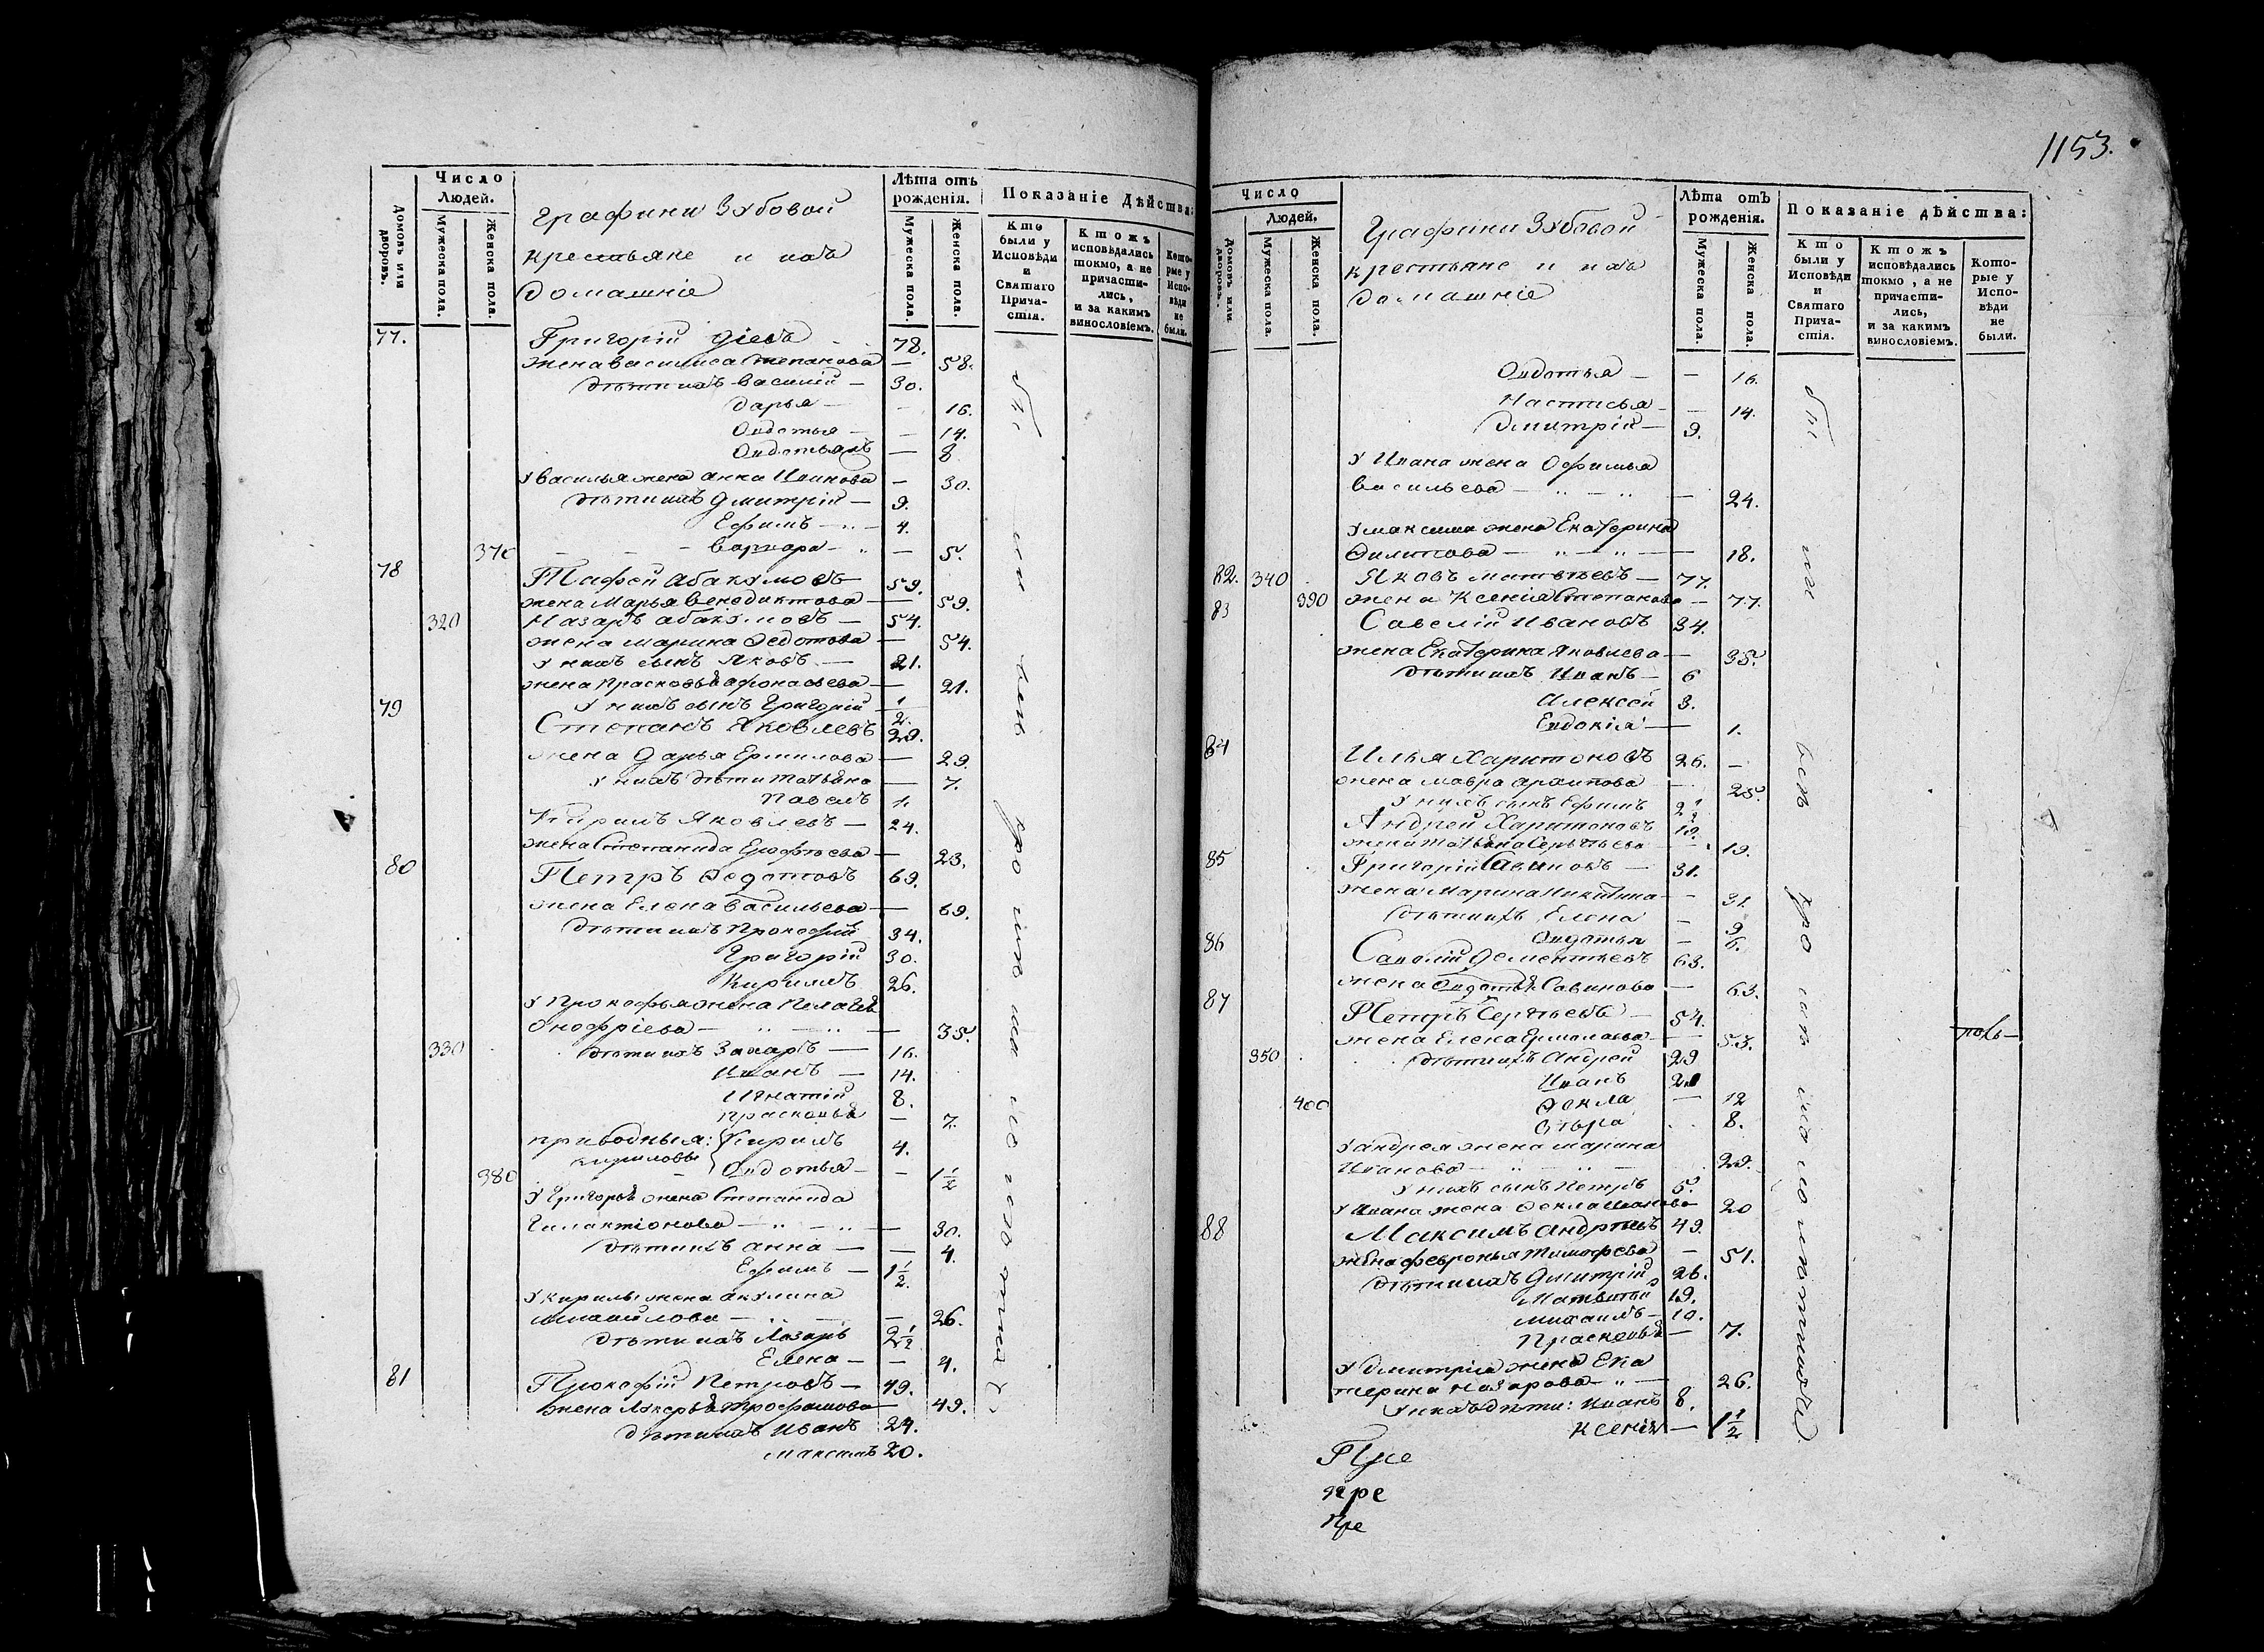 1153.
Число
Людей.
Лѣта отъ
рожденія.
Показаніе Дѣйства:
Домовъ или дворовъ.
Мужеска пола.
Женска пола.
Графини Зубовой
крестьяне и ихъ
домашніе
Мужеска пола.
Женска пола.
Кто были у Исповѣди и Святаго Прича-стія.
Ктожъ исповѣдались токмо, а не причасти-лись, и за какимъ винословіемъ.
Кото-рые у Испо-вѣди не были.
77. Григорій 78.
жена Василиса Степанова — 58.
дѣти ихъ Василій — 30.
Дарья — — 16.
Овдотья — — 14.
Овдотьяжъ — 8
У Василья жена Анна Иванова — 30.
дѣти ихъ Дмитрій — 9.
Ефимъ — 4.
370 Варвара — — 5.
78 Абакумовъ 59.
жена Марья Венедиктова — 59.
320 Назаръ Абакумовъ — 54.
жена Марина Федотова — 54.
У нихъ сынъ Яковъ — 21.
жена Прасковья Афонасьева — 21.
У нихъ сынъ Григорій 1/2.
79 Степанъ Яковлевъ 29.
жена Дарья Ермилова — 29.
У нихъ дѣти Татьяна — 7.
Павелъ 1.
Кирилъ Яковлевъ — 24.
жена Степанида Ерофѣева — 23.
80 Петръ Федотовъ 69.
жена Елена Васильева — 69.
дѣти ихъ Прокофій 34.
Григорій 30.
Кирилъ 26.
У Прокофья жена Пелагея
Онофріева — — 35.
330 дѣти ихъ Захаръ — 16.
Иванъ — 14.
Игнатій 8.
Прасковья — 7.
приводныя: Кирилъ 4.
Кириловы
380 Овдотья — — 1 1/2
У Григорья жена Степанида
Галактіонова — — 30.
дѣти ихъ Анна — — 4.
Ефимъ — 1 1/2.
У Кирилы жена Акулина
Михайлова — — 26.
дѣти ихъ Лазарь 2 1/2
Елена — — 4.
81 Прокофій Петровъ — 49.
жена Лукерья Трофимова — 49.
дѣти ихъ Иванъ 24.
Максимъ 20.
Число
Людей.
Лѣта отъ
рожденія.
Показаніе дѣйства:
Домовъ или дворовъ.
Мужеска пола.
Женска пола.
Графини Зубовой
крестьяне и ихъ
домашніе
Мужеска пола.
Женска пола.
Кто были у Исповѣди и Святаго Прича-стія.
Ктожъ исповѣдались токмо, а не причасти-лись, и за какимъ винословіемъ.
Кото-рые у Испо-вѣди не были.
Овдотья — — 16.
Настасья — — 14.
Дмитрій — 9.
У Ивана жена Офимья
Васильева — — 24.
У Максима жена Екатерина
Филипова — — 18.
82. 340 Яковъ Матвѣевъ — 77.
390 жена Ксенія Степанова — 77.
83 Савелій Ивановъ 34.
жена Екатерина Яковлева — 35.
дѣти ихъ Иванъ — 6
Алексей 3.
Евдокія — 1.
84 Илья Харитоновъ 26. —
жена Мавра Архипова — 25.
У нихъ сынъ Ефимъ 2 1/2
Андрей Харитоновъ 19.
жена Татьяна Сергѣева — 19.
85 Григорій Савиновъ — 31.
жена Марина Никитина — 31
дѣти ихъ Елена — 9
Овдотья — 6.
86 Савелій Дементьевъ 63.
жена Овдотья Савинова — 63.
87 Петръ Сергѣевъ — 54.
жена Елена Ермолаева — 53.
350 дѣти ихъ Андрей 29
Иванъ
400 Фекла — 12
8.
У Андрея жена Марина
Иванова — — 29.
У нихъ сынъ Петръ 5.
У Ивана жена Фекла Иванова 20
88 Максимъ Андреевъ 49.
жена Февронья Тимофеева — 51.
дѣти ихъ Дмитрій 26.
Матвей 19.
Михаилъ — 10.
Прасковья — 7.
У Дмитрія жена Ека
терина Назарова — — 26.
У нихъ дѣти: Иванъ 8.
Ксенія — 1 1/2
Пре
пре
Пре